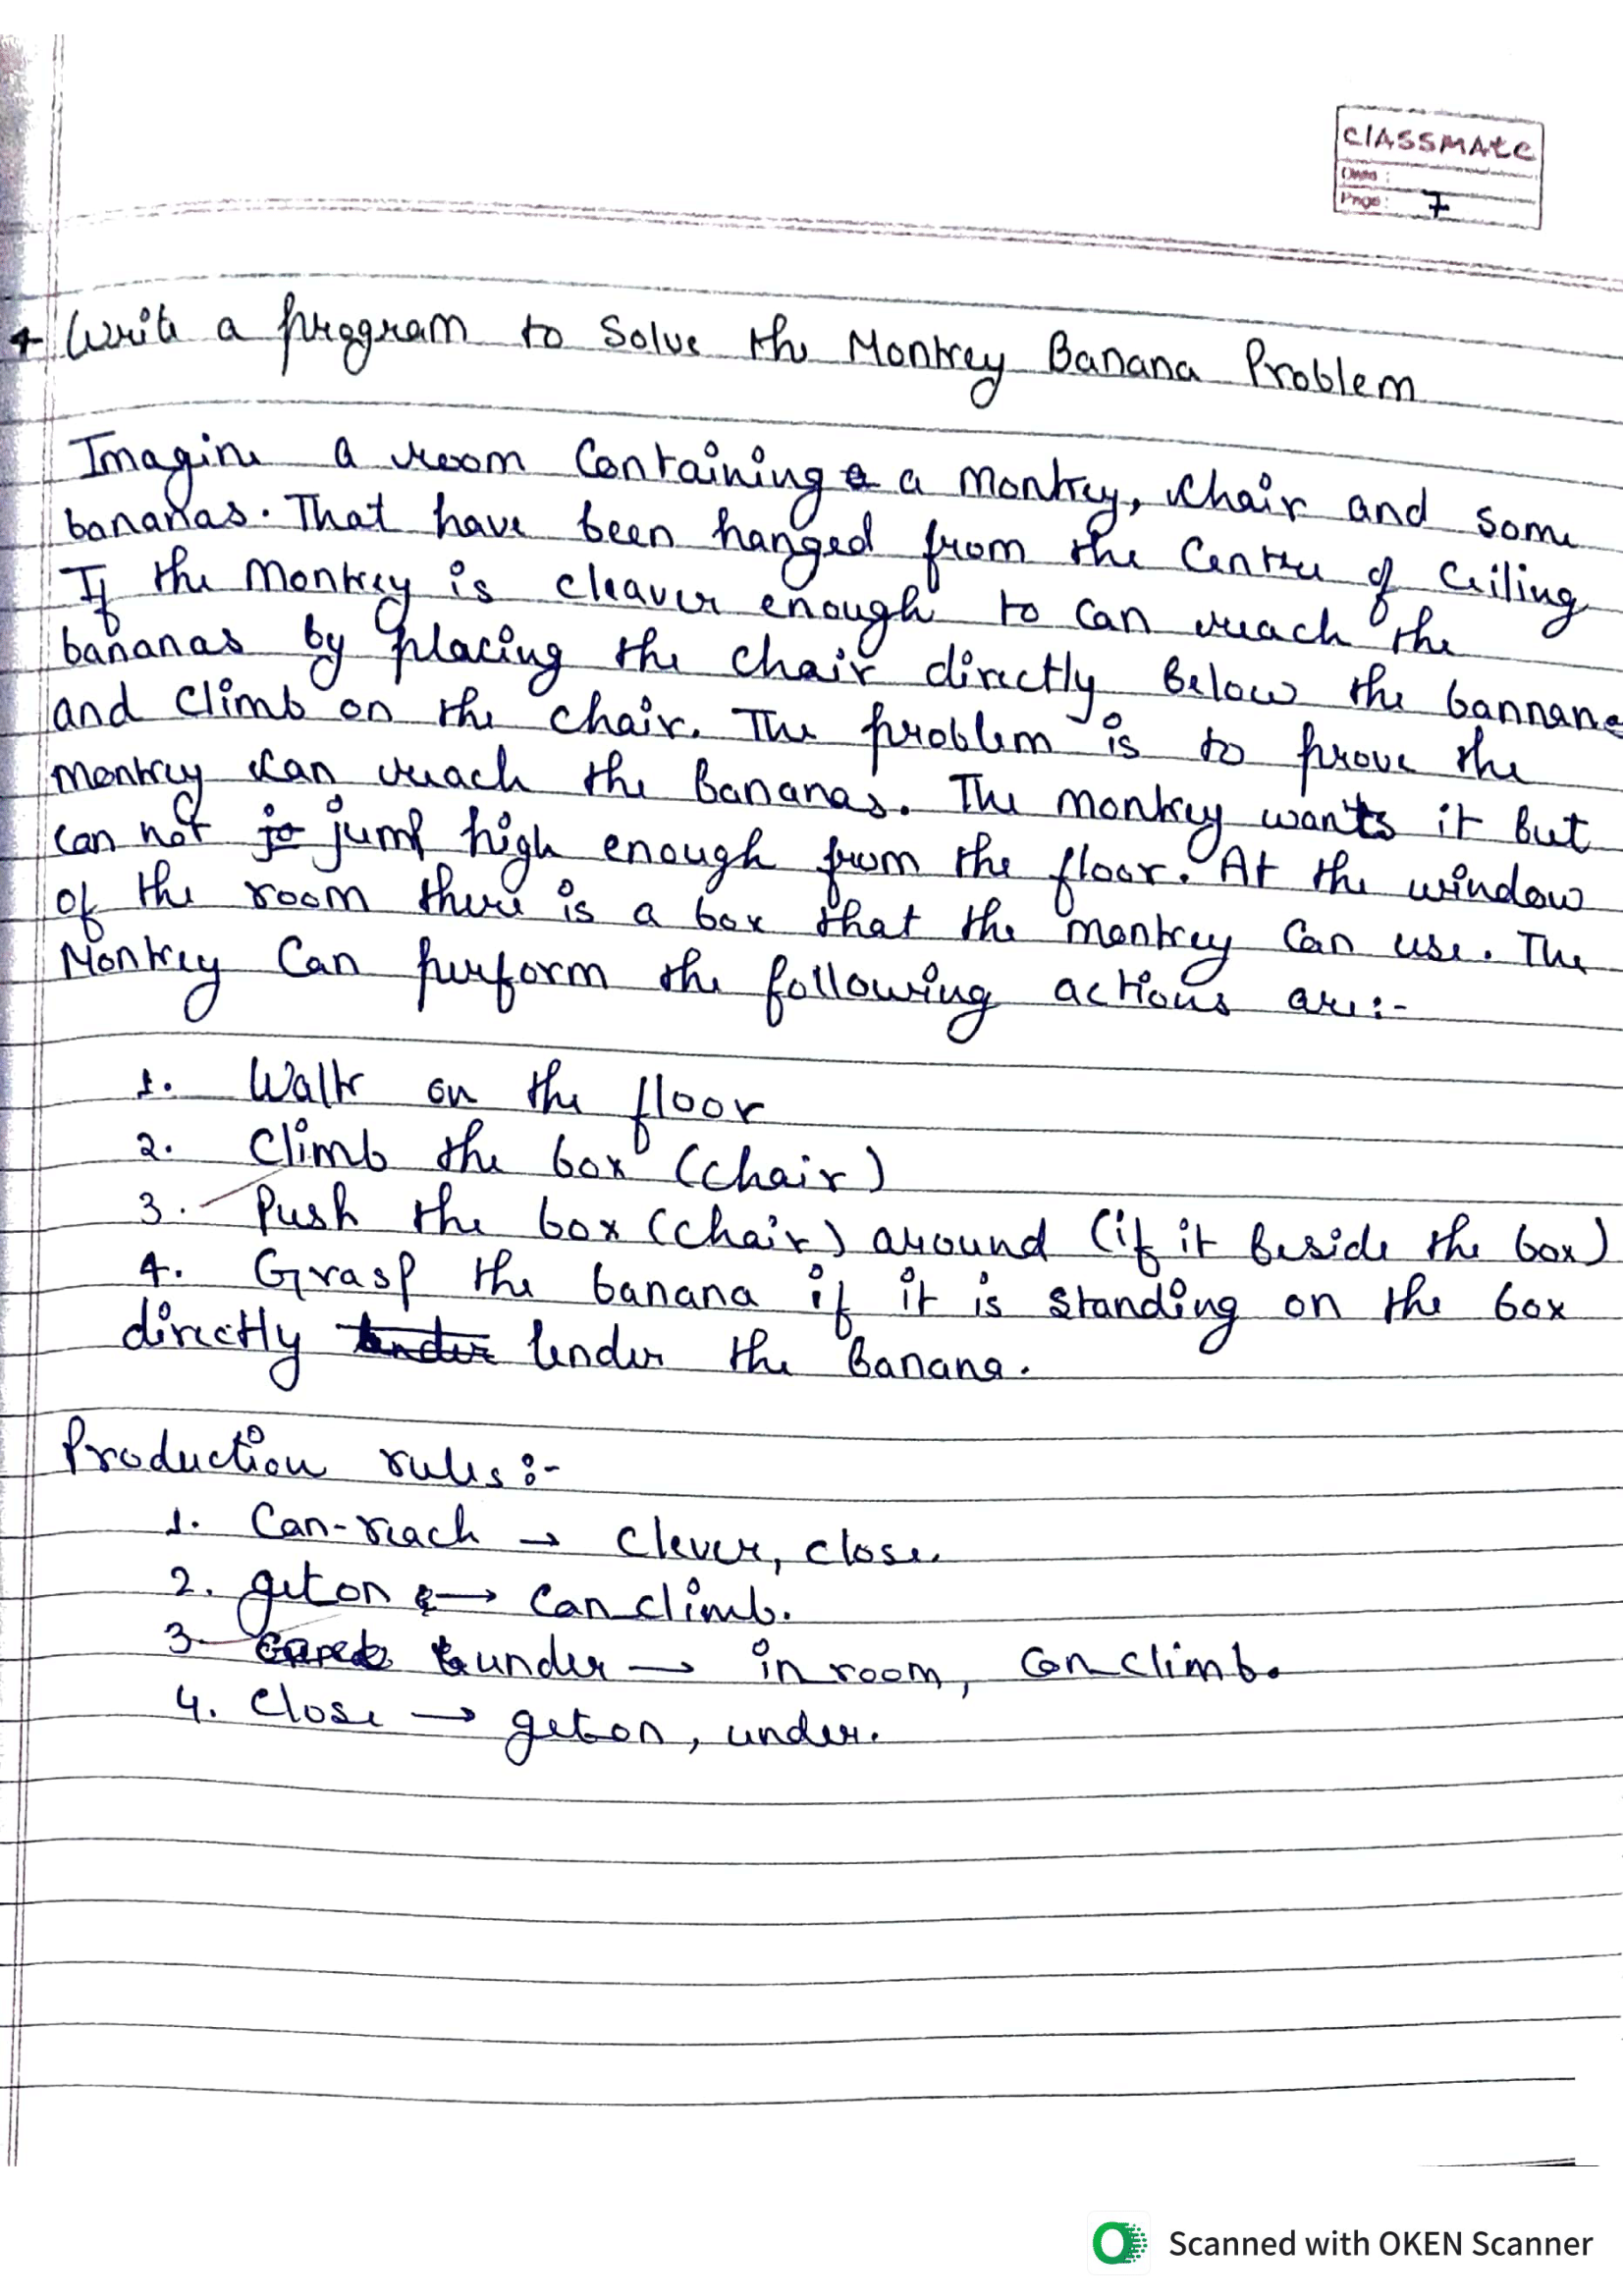 CLASSMATE
Date :
Page : 7
4 Write a program to Solve the Monkey Banana Problem
Imagine a room Containing a monkey, chair and some
bananas. That have been hanged from the Centre of Ceiling
If the Monkey is cleaver enough to can reach the
bananas by placing the chair directly Below the bannana
and climb on the chair. The problem is to prove the
monkey can reach the Bananas. The monkey wants it But
can not jump high enough from the floor. At the window
of the room there is a box that the monkey Can use. The
Monkey Can perform the following actions are:-
1. Walk on the floor
2. Climb the box (chair)
3. Push the box (chair) around (if it Beside the box)
4. Grasp the banana if it is standing on the box
directly Under the Banana.
Production rules :-
1. Can-reach → clever, close.
2. get on → Can climb.
3 under → in room, Can climb.
4. Close → get on, under.
Scanned with OKEN Scanner